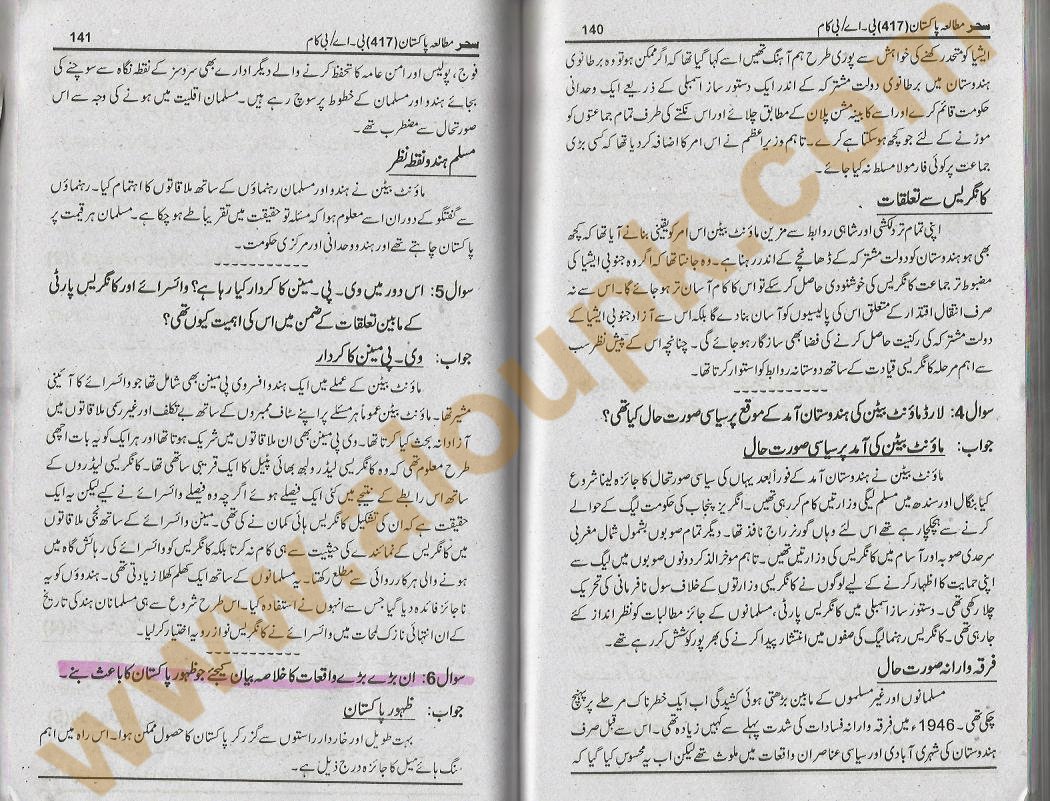 140 سحر مطالعہ پاکستان (417) بی۔اے/بی کام
ایشیا کو متحد رکھنے کی خواہش سے پوری طرح ہم آہنگ تھیں اسے کہا گیا تھا کہ اگر ممکن ہو تو وہ برطانوی
ہندوستان میں برطانوی دولت مشترکہ کے اندر ایک دستور ساز اسمبلی کے ذریعے ایک وحدانی
حکومت قائم کرے اور اسے کابینہ مشن پلان کے مطابق چلائے اور اس نکتے کی طرف تمام جماعتوں کو
موڑنے کے لئے جو کچھ ہو سکتا ہے کرے۔ تاہم وزیر اعظم نے اس امر کا اضافہ کر دیا تھا کہ کسی بڑی
جماعت پر کوئی فارمولا مسلط نہ کیا جائے۔
کانگریس سے تعلقات
اپنی تمام تر دلکشی اور شاہی روابط سے مزین ماؤنٹ بیٹن اس امر کو یقینی بنانے آیا تھا کہ کچھ
بھی ہو ہندوستان کو دولت مشترکہ کے ڈھانچے کے اندر رہنا ہے۔ وہ جانتا تھا کہ اگر وہ جنوبی ایشیا کی
مضبوط تر جماعت کانگریس کی خوشنودی حاصل کر سکے تو اس کا کام آسان تر ہو جائے گا۔ اس سے نہ
صرف انتقال اقتدار کے متعلق اس کی پالیسیوں کو آسان بنا دے گا بلکہ اس سے آزاد جنوبی ایشیا کے
دولت مشترکہ کی رکنیت حاصل کرنے کی فضا بھی سازگار ہو جائے گی۔ چنانچہ اس کے پیش نظر سب
سے اہم مرحلہ کانگریسی قیادت کے ساتھ دوستانہ روابط کو استوار کرنا تھا۔
سوال 4: لارڈ ماؤنٹ بیٹن کی ہندوستان آمد کے موقع پر سیاسی صورت حال کیا تھی؟
جواب: ماؤنٹ بیٹن کی آمد پر سیاسی صورت حال
ماؤنٹ بیٹن نے ہندوستان آمد کے فوراً بعد یہاں کی سیاسی صورتحال کا جائزہ لینا شروع
کیا بنگال اور سندھ میں مسلم لیگی وزارتیں کام کر رہی تھیں۔ انگریز پنجاب کی حکومت لیگ کے حوالے
کرنے سے ہچکچا رہے تھے اس لئے وہاں گورنر راج نافذ تھا۔ دیگر تمام صوبوں بشمول شمال مغربی
سرحدی صوبہ اور آسام میں کانگریس کی وزارتیں تھیں۔ تاہم موخر الذکر دونوں صوبوں میں لیگ سے
اپنی حمایت کا اظہار کرنے کے لیے لوگوں نے کانگریسی وزارتوں کے خلاف سول نافرمانی کی تحریک
چلا رکھی تھی۔ دستور ساز اسمبلی میں کانگریس پارٹی، مسلمانوں کے جائز مطالبات کو نظر انداز کئے
جا رہی تھی۔ کانگریس رہنما لیگ کی صفوں میں انتشار پیدا کرنے کی بھر پور کوشش کر رہے تھے۔
فرقہ وارانہ صورت حال
مسلمانوں اور غیر مسلموں کے مابین بڑھتی ہوئی کشیدگی اب ایک خطرناک مرحلے پر پہنچ
چکی تھی۔ 1946ء میں فرقہ وارانہ فسادات کی شدت پہلے سے کہیں زیادہ تھی۔ اس سے قبل صرف
ہندوستان کی شہری آبادی اور سیاسی عناصر ان واقعات میں ملوث تھے لیکن اب یہ محسوس کیا گیا کہ
141 سحر مطالعہ پاکستان (417) بی۔اے/بی کام
فوج، پولیس اور امن عامہ کا تحفظ کرنے والے دیگر ادارے بھی سروسز کے نقطہ نگاہ سے سوچنے کی
بجائے ہندو اور مسلمان کے خطوط پر سوچ رہے ہیں۔ مسلمان اقلیت میں ہونے کی وجہ سے اس
صورتحال سے مضطرب تھے۔
مسلم ہندو نقطہ نظر
ماؤنٹ بیٹن نے ہندو اور مسلمان رہنماؤں کے ساتھ ملاقاتوں کا اہتمام کیا۔ رہنماؤں
سے گفتگو کے دوران اسے معلوم ہوا کہ مسئلہ تو حقیقت میں تقریباً طے ہو چکا ہے۔ مسلمان ہر قیمت پر
پاکستان چاہتے تھے اور ہندو وحدانی اور مرکزی حکومت۔
سوال 5: اس دور میں وی۔پی۔مینن کا کردار کیا رہا ہے؟ وائسرائے اور کانگریس پارٹی
کے مابین تعلقات کے ضمن میں اس کی اہمیت کیوں تھی؟
جواب: وی۔پی مینن کا کردار
ماؤنٹ بیٹن کے عملے میں ایک ہندو افسر وی پی مینن بھی شامل تھا جو وائسرائے کا آئینی
مشیر تھا۔ ماؤنٹ بیٹن عموماً ہر مسئلے پر اپنے سٹاف ممبروں کے ساتھ بے تکلف اور غیر رسمی ملاقاتوں میں
آزادانہ بحث کیا کرتا تھا۔ وی پی مینن بھی ان ملاقاتوں میں شریک ہوتا تھا اور ہر ایک کو یہ بات اچھی
طرح معلوم تھی کہ وہ کانگریسی لیڈر ولبھ بھائی پٹیل کا ایک قریبی ساتھی تھا۔ کانگریسی لیڈروں کے
ساتھ اس رابطے کے نتیجے میں کئی ایک فیصلے ہوئے اگرچہ وہ فیصلے وائسرائے نے کیے لیکن یہ ایک
حقیقت ہے کہ ان کی تشکیل کانگریس ہائی کمان نے کی تھی۔ مینن وائسرائے کے ساتھ نجی ملاقاتوں
میں کانگریس کے نمائندے کی حیثیت سے ہی کام نہ کرتا بلکہ کانگریس کو وائسرائے کی رہائش گاہ میں
ہونے والی ہر کارروائی سے مطلع رکھتا۔ یہ مسلمانوں کے ساتھ ایک کھلم کھلا زیادتی تھی۔ ہندوؤں کو یہ
ناجائز فائدہ دیا گیا جس سے انہوں نے استفادہ کیا۔ اس طرح شروع سے ہی مسلمانان ہند کی تاریخ
کے ان انتہائی نازک لمحات میں وائسرائے نے کانگریس نواز رویہ اختیار کر لیا۔
سوال 6: ان بڑے بڑے واقعات کا خلاصہ بیان کیجئے جو ظہور پاکستان کا باعث بنے۔
جواب: ظہور پاکستان
بہت طویل اور خاردار راستوں سے گزر کر پاکستان کا حصول ممکن ہوا۔ اس راہ میں اہم
سنگ ہائے میل کا جائزہ درج ذیل ہے۔
www.aioupk.com